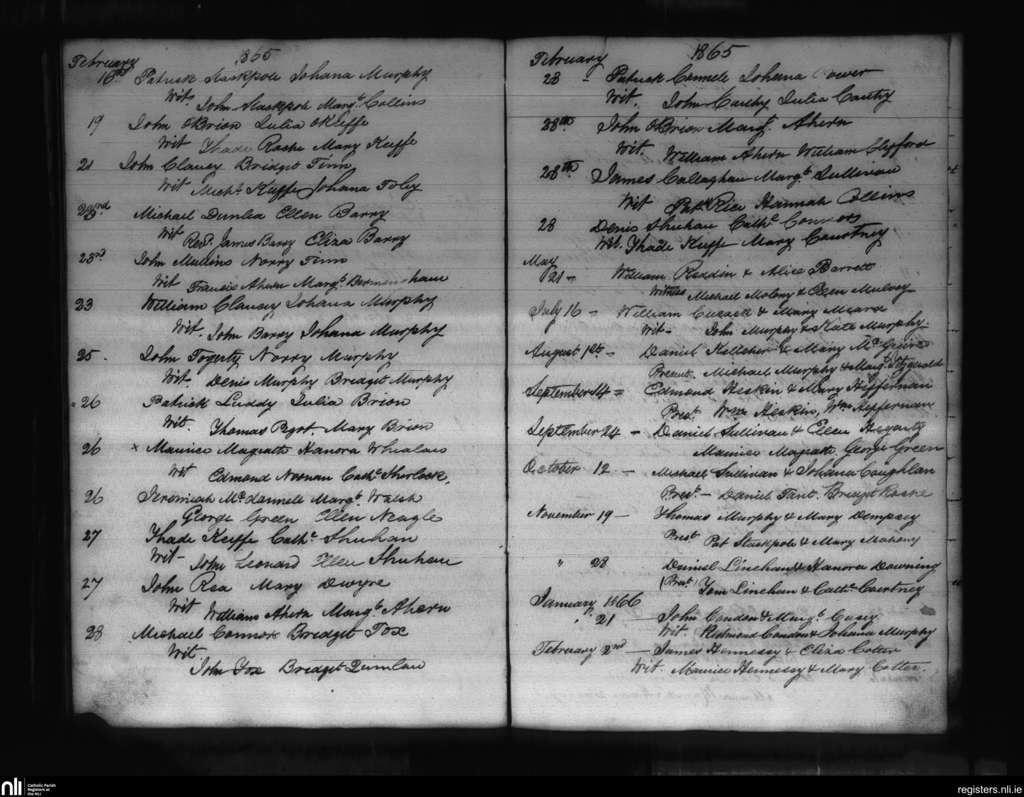 February 1865
16th Patrick Stackpole Johana Murphy
Wit. John Stackpole Margt Collins
19 John OBrion Julia OKieffe
Wit Thade Roche Mary Kieffe
21 John Clancy Bridget Finn
Wit Michl Kieffe Johana Foley
23rd Michael Dunlea Ellen Barry
Wit Revd. James Barry Eliza Barry
23rd John Mullins Norry Finn
Wit Francis Ahern Margt
23 William Clancy Johana Murphy
Wit. John Barry Johana Murphy
25. John Fogerty Norry Murphy
Wit. Denis Murphy Bridget Murphy
26 Patrick Luddy Julia Brion
Wit. Thomas Mary Brion
26 x Maurice Magrath Hanora
Wit Edmond Noonan Cathe Sherlock.
26 Jeremiah Margt Walsh
George Green Ellen Neagle
27 Thade Kieffe Cathe Shuhan
Wit John Leonard Ellen Shuhan
27 John Rea Mary Dwyre
Wit William Ahern Margt Ahern
28 Michael Connors Bridget Fox
Wit
John Fox Bridget Quinlan
February 1865
28 - Patrick Johana Power
Wit. John Julia
28th John OBrion Margt. Ahern
Wit. William Ahern William
28th James Callaghan Margt Sullivan
Wit Patk Rice Hannah Collins
28 Denis Shuhan Cathe Connors
Wit. Thade Kieffe Mary Courtney
May
21 - William Reddin & Alice Barrett
Witness Michael Molony & Ellen
July 16 - William & Mary
Wit - John Murphy & Kate Murphy
August 1st - Daniel Kelleher & Mary
Present Michael Murphy & Margt Fitzgerald
September 14 = Edmond Heskin & Mary Heffernan
Prest. Wm Heskin, Wm Heffernan
September 24 - Daniel Sullivan & Ellen Hegarty
Maurice Magrath George Green
October 12 - Michael Sullivan & Johana Coughlan
Prest - Daniel Bridget Roche
November 19 - Thomas Murphy & Mary Dempsey
Prest Pat Stackpole & Mary Mahony
" 28 Daniel Linehan & Hanora Downing
(Prest) Tom Linehan & Cathe Courtney
January 1866
" 21 - John Condon & Margt Casey
Wit. Redmond Condon & Johana Murphy
February 2nd - James Hennessy & Eliza Cotter
Wit. Maurice Hennessy & Mary Cotter.
nli Catholic Parish Registers at the NLI
registers.nli.ie